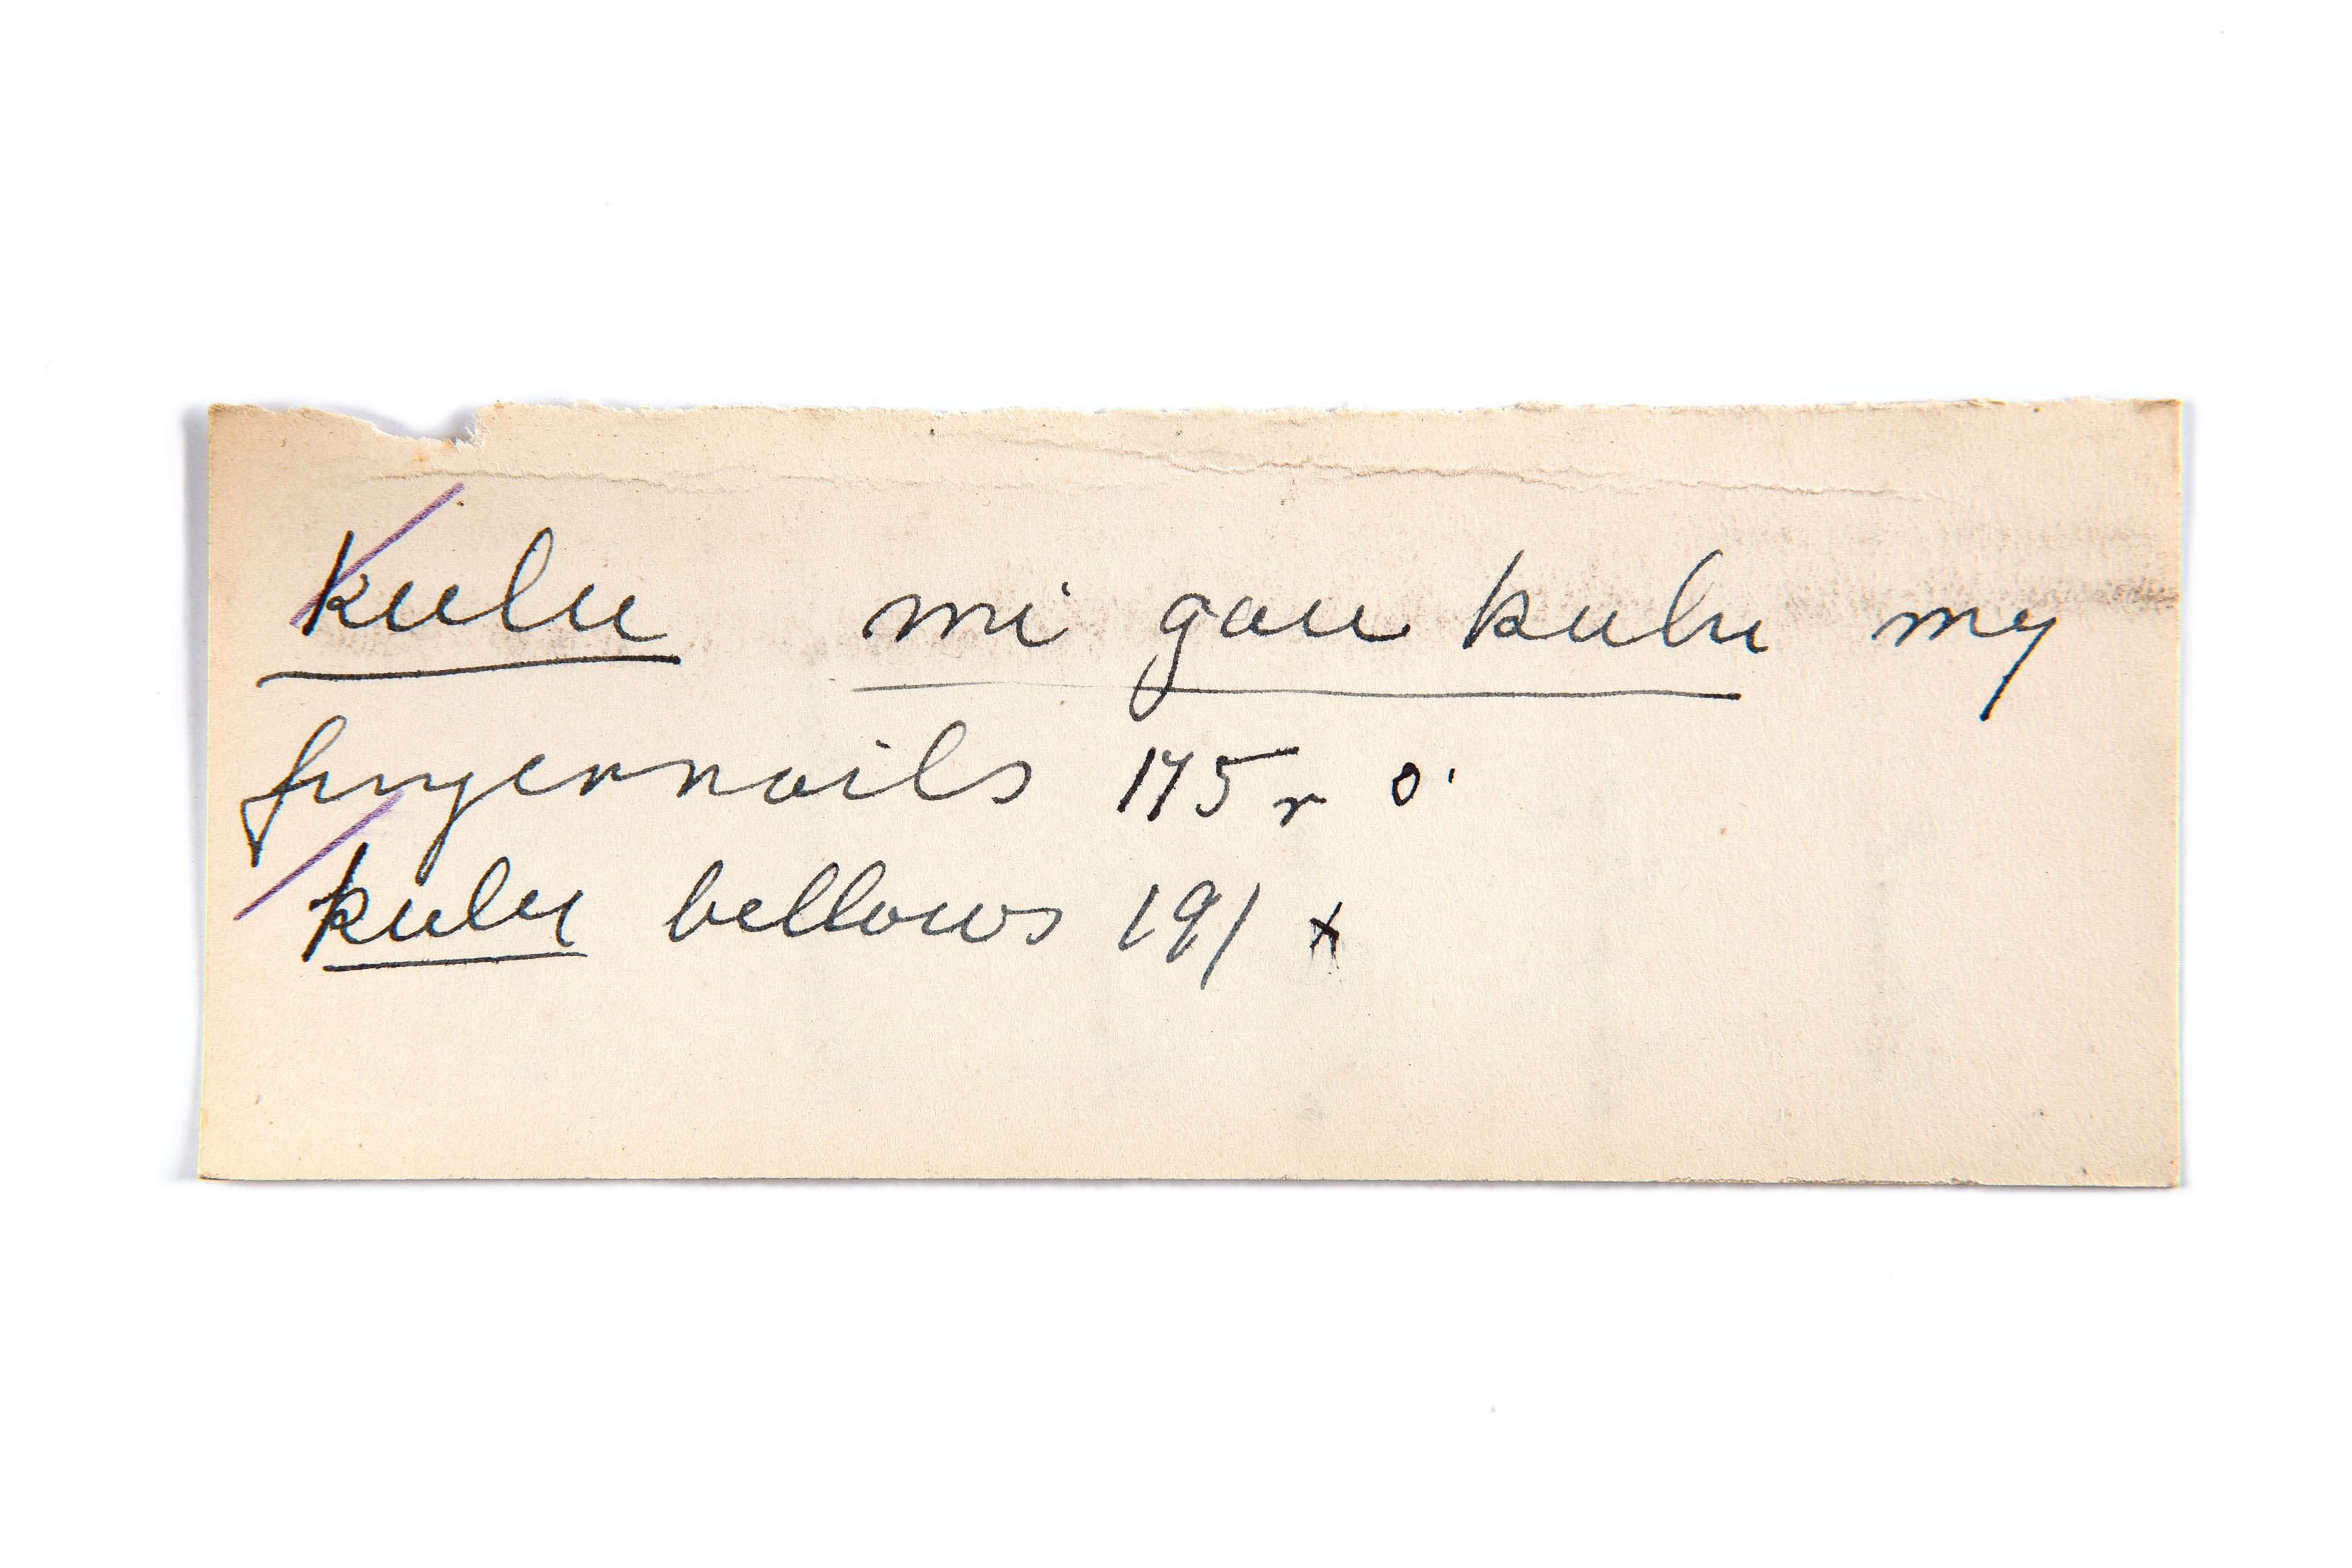 kulu mi gau kulu my
fingernails 175 r o'
kulu bellows 191 x